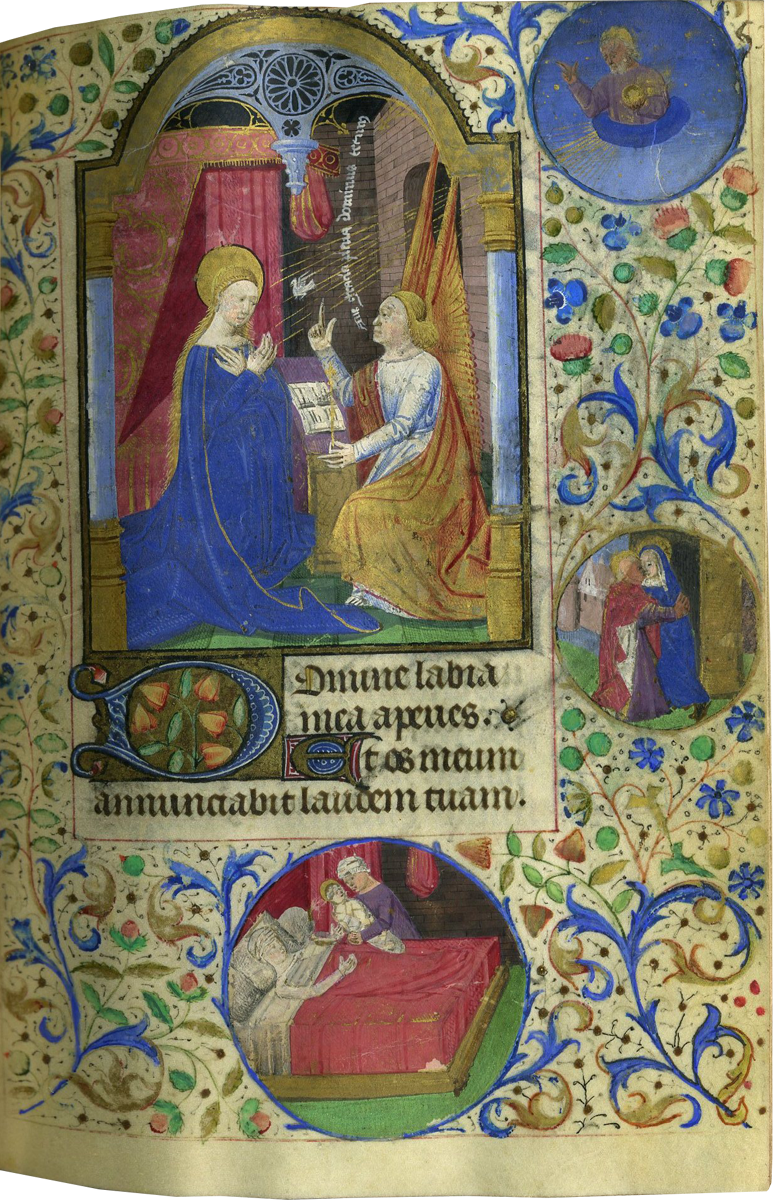 ave gracia plena dominus tecum
Domine labia
mea aperies.
Et os meum
annunciabit laudem tuam.